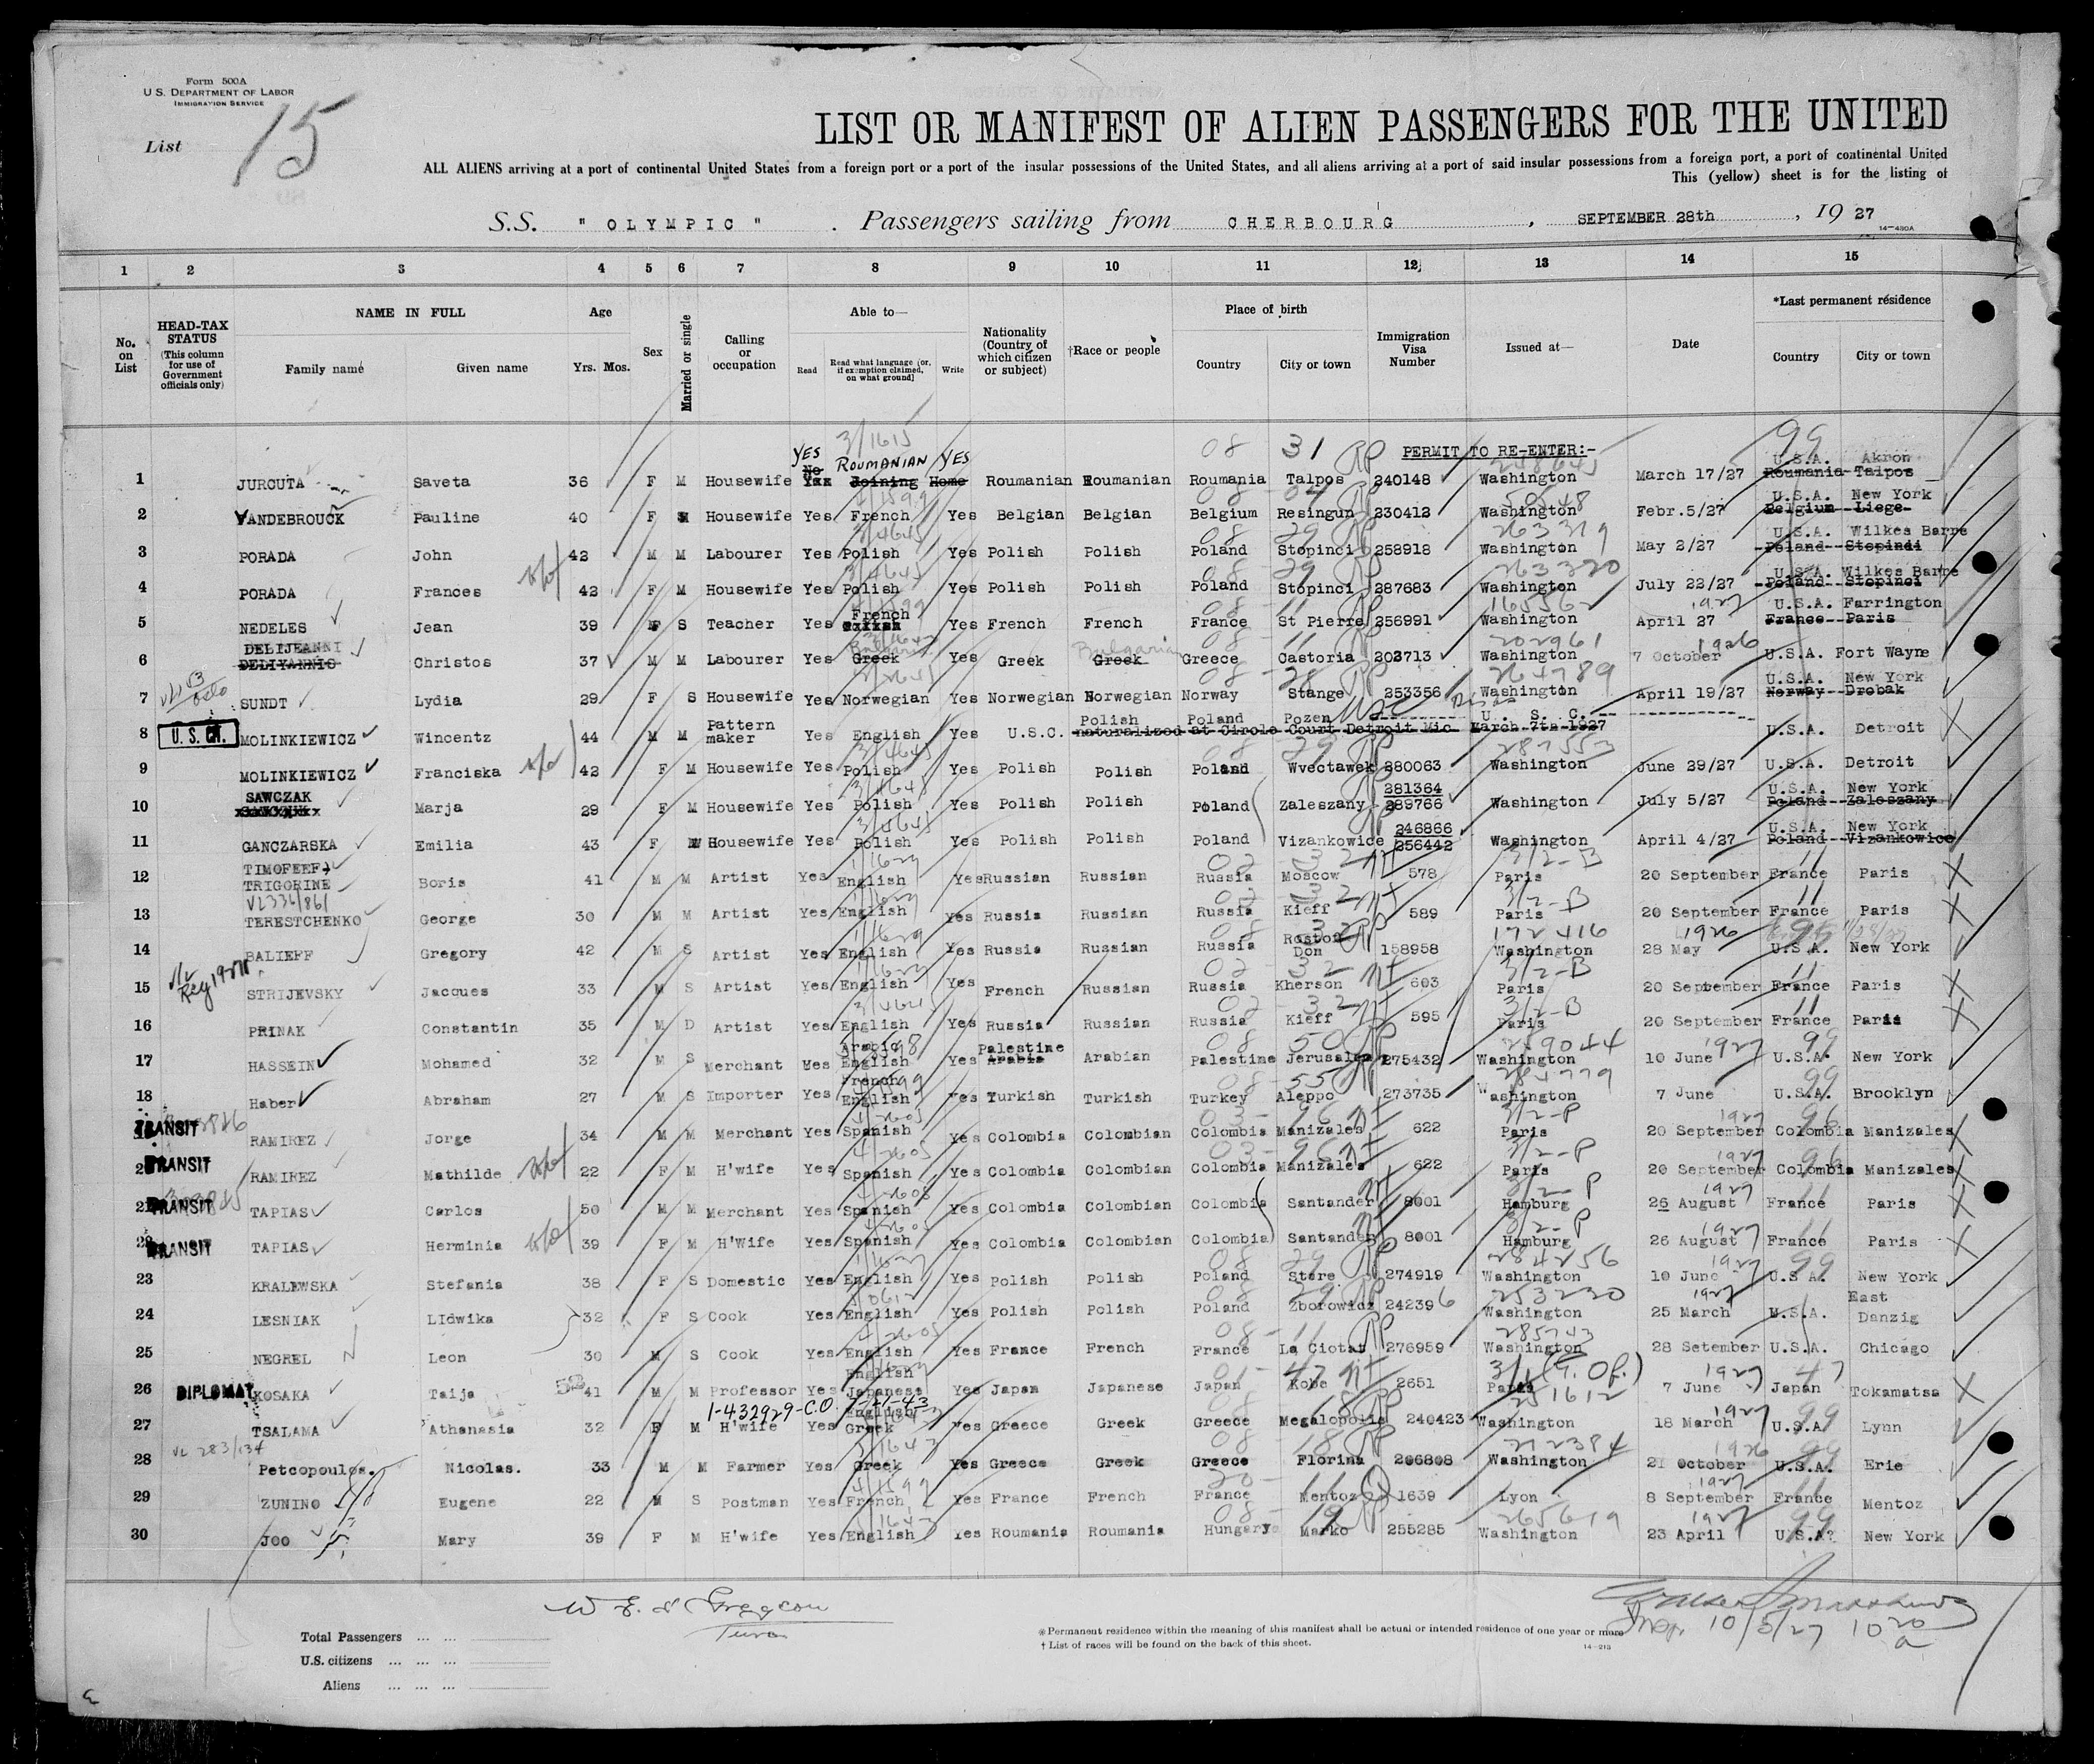 Form 500A
U. S. DEPARTMENT OF LABOR
IMMIGRATION SERVICE
List 15
LIST OR MANIFEST OF ALIEN PASSENGERS FOR THE UNITED
ALL ALIENS arriving at a port of continental United States from a foreign port or a port of the insular possessions of the United States, and all aliens arriving at a port of said insular possessions from a foreign port, a port of continental United
This (yellow) sheet is for the listing of
S.S. " OLYMPIC " . Passengers sailing from CHERBOURG , SEPTEMBER 28th , 19 27
14—430A
1 2 3 4 5 6 7 8 9 10 11 12 13 14 15
No. on List
HEAD-TAX STATUS (This column for use of Government officials only)
NAME IN FULL Family name Given name
Age Yrs. Mos.
Sex
Married or single
Calling or occupation
Able to— Read Read what language [or, if exemption claimed, on what ground] Write
Nationality (Country of which citizen or subject)
†Race or people
Place of birth Country City or town
Immigration Visa Number
Issued at—
Date
*Last permanent résidence Country City or town
08 31 RP PERMIT TO RE-ENTER:- 99
YES ROUMANIAN YES U.S.A. Akron
1 JURCUTA Saveta 36 F M Housewife Joining Home Roumanian Roumanian Roumania Talpos 240148 Washington March 17/27 Roumania Talpos
U.S.A. New York
2 VANDEBROUCK Pauline 40 F M Housewife Yes French Yes Belgian Belgian Belgium Resingun 230412 Washington Febr.5/27 Belgium Liege
263319 U.S.A. Wilkes Barre
3 PORADA John 42 M M Labourer Yes Polish Yes Polish Polish Poland Stopinci 258918 Washington May 2/27 Poland Stopindi
263320 U.S.A. Wilkes Barre
4 PORADA Frances w/o 42 F M Housewife Yes Polish Yes Polish Polish Poland Stopinci 287683 Washington July 22/27 Poland Stopinci
French 1927 U.S.A. Farrington
5 NEDELES Jean 39 F S Teacher Yes Yes French French France St Pierre 256991 Washington April 27 France Paris
DELIJEANNI Bulgarian 202961 1926
6 DELIYANNIS Christos 37 M M Labourer Yes Greek Yes Greek Greek Greece Castoria 203713 Washington 7 October U.S.A. Fort Wayne
264789 U.S.A. New York
7 SUNDT Lydia 29 F S Housewife Yes Norwegian Yes Norwegian Norwegian Norway Stange 253356 Washington April 19/27 Norway Drobak
Polish Poland Pozen U. S. C.
8 U.S. CIT. MOLINKIEWICZ Wincentz 44 M M Pattern maker Yes English Yes U.S.C. naturalized at Circle Court Detroit Mic. March 7th 1927 U.S.A. Detroit
287553
9 MOLINKIEWICZ Franciska w/o 42 F M Housewife Yes Polish Yes Polish Polish Poland Wvectawek 280063 Washington June 29/27 U.S.A. Detroit
SAWCZAK 281364 U.S.A. New York
10 Marja 29 F M Housewife Yes Polish Yes Polish Polish Poland Zaleszany 289766 Washington July 5/27 Poland Zaleszany
246866 U.S.A. New York
11 GANCZARSKA Emilia 43 F M Housewife Yes Polish Yes Polish Polish Poland Vizankowice 256442 Washington April 4/27 Poland Vizankowice
TIMOFEEF 3/2-B 11
12 TRIGORINE Boris 41 M M Artist Yes English Yes Russian Russian Russia Moscow 578 Paris 20 September France Paris
3/2-B 11
13 TERESTCHENKO George 30 M M Artist Yes English Yes Russia Russian Russia Kieff 589 Paris 20 September France Paris
172416 1926
14 BALIEFF Gregory 42 M S Artist Yes English Yes Russia Russian Russia Rostoff Don 158958 Washington 28 May U.S.A. New York
3/2-B 11
15 STRIJEVSKY Jacques 33 M S Artist Yes English Yes French Russian Russia Kherson 603 Paris 20 September France Paris
3/2-B 11
16 PRINAK Constantin 35 M D Artist Yes English Yes Russia Russian Russia Kieff 595 Paris 20 September France Paris
Arabic Palestine 1927 99
17 HASSEIN Mohamed 32 M S Merchant Yes English Yes Arabia Arabian Palestine Jerusalem 275432 Washington 10 June U.S.A. New York
French 99
18 Haber Abraham 27 M S Importer Yes English Yes Turkish Turkish Turkey Aleppo 273735 Washington 7 June U.S.A. Brooklyn
3/2-P 1927 96
TRANSIT RAMIREZ Jorge 34 M M Merchant Yes Spanish Yes Colombia Colombian Colombia Manizales 622 Paris 20 September Colombia Manizales
3/2-P 1927 96
TRANSIT RAMIREZ Mathilde w/o 22 F M H'wife Yes Spanish Yes Colombia Colombian Colombia Manizales 622 Paris 20 September Colombia Manizales
3/2-P 1927 11
21 TRANSIT TAPIAS Carlos 50 M M Merchant Yes Spanish Yes Colombia Colombian Colombia Santander 8001 Hamburg 26 August France Paris
3/2-P 1927 11
TRANSIT TAPIAS Herminia w/o 39 F M H'Wife Yes Spanish Yes Colombia Colombian Colombia Santander 8001 Hamburg 26 August France Paris
284256 1927 99
23 KRALEWSKA Stefania 38 F S Domestic Yes English Yes Polish Polish Poland Stare 274919 Washington 10 June U.S A. New York
253230 1927 East
24 LESNIAK LIdwika 32 F S Cook Yes English Yes Polish Polish Poland Zborowicz 242396 Washington 25 March U.S.A. Danzig
285743
25 NEGREL Leon 30 M S Cook Yes English Yes France French France La Ciotat 276959 Washington 28 Setember U.S.A. Chicago
English 1927 47
26 DIPLOMAT KOSAKA Taija 52 41 M M Professor Yes Japanese Yes Japan Japanese Japan Kobe 2651 Paris 7 June Japan Tokamatsa
1-432929-C.O. 7-21-43 English 1927 99
27 TSALAMA Athanasia 32 F M H'wife Yes Greek Yes Greece Greek Greece Megalopolis 240423 Washington 18 March U.S.A Lynn
VL 283/134 212384 1926 99
28 Petcopoulos. Nicolas. 33 M M Farmer Yes Greek Yes Greece Greek Greece Florina 206808 Washington 21 October U.S.A. Erie
1927 11
29 ZUNINO Eugene 22 M S Postman Yes French Yes France French France Mentoz 1639 Lyon 8 September France Mentoz
265619 1927 99
30 Joo Mary 39 F M H'wife Yes English Yes Roumania Roumania Hungary Marko 255285 Washington 23 April U.S.A? New York
Total Passengers ... ...
U.S. citizens ... ... ...
Aliens ... ... ...
※ Permanent residence within the meaning of this manifest shall be actual or intended residence of one year or more
† List of races will be found on the back of this sheet.
14—213
Insp. 10/5/27 10 20 a